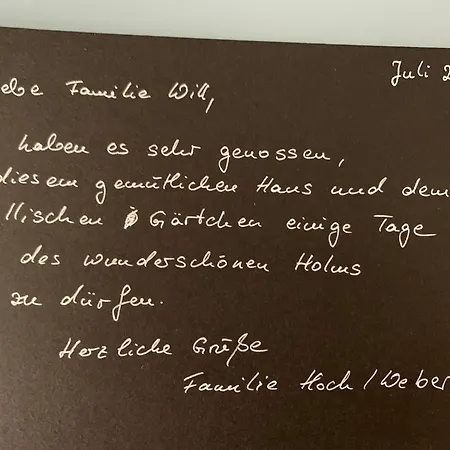 Juli 2
ebe Familie Will,
haben es sehr genossen,
diesem gemütlichen Haus und dem
llischen Gärtchen einige Tage
des wunderschönen Holms
zu dürfen.
Herzliche Grüße
Familie Hoch / Weber